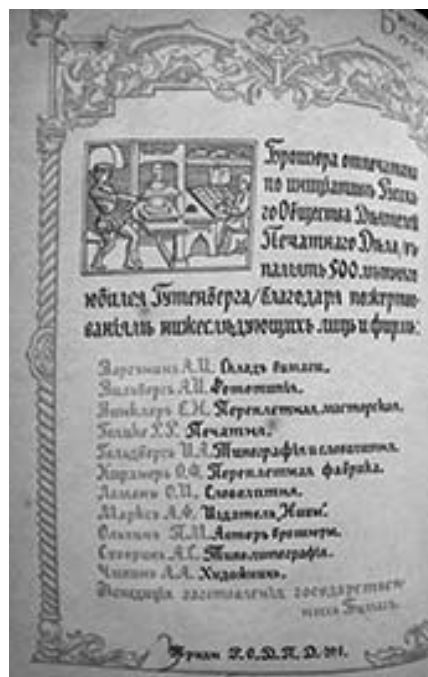 Брошюра отпечатана
по инициативѣ Русска-
го Общества Дѣятелей
Печатнаго Дѣла, въ
память 500 лѣтняго
юбилея Гутенберга/благодаря пожертво-
ваніямъ нижеслѣдующихъ лицъ и фирмъ:
Варгунинъ А.И. Складъ бумаги.
Вильборгъ А.И. Фототипія.
Винклеръ Е.Н. Переплетная мастерская.
Голике Р.Р. Печатня.
Гольдбергъ И.А. Типографія и словолитня.
Кирхнеръ О.Ф. Переплетная фабрика.
Леманъ О.И. Словолитня.
Марксъ А.Ф. Издатель „Нивы“.
Ольхинъ П.М. Авторъ брошюры.
Суворинъ А.С. Типолитографія.
Чикинъ А.А. Художникъ.
Экспедиція заготовленія государствен-
ныхъ бумагъ.
Труды Р.О.Д.П.Д. №1.